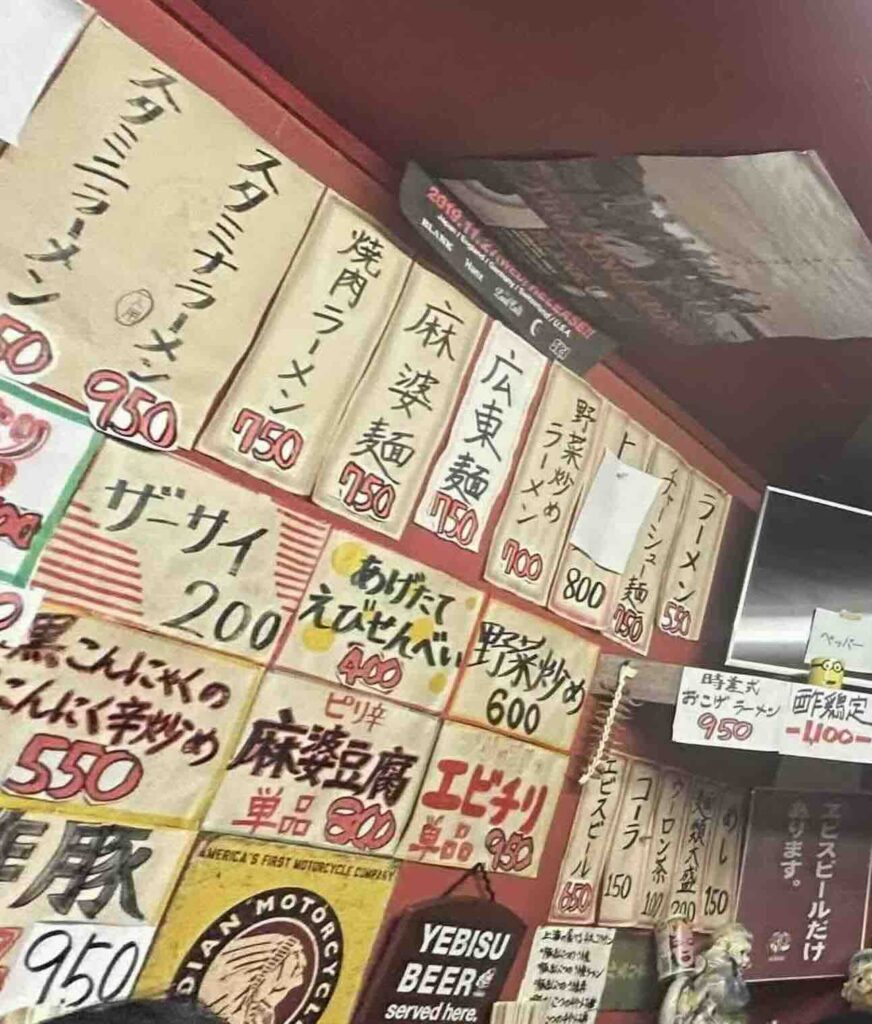 スタミニラーメン
50
スタミナラーメン
950
焼肉ラーメン
750
麻婆麺
750
広東麺
750
野菜炒めラーメン
700
800
チャーシュー麺
750
ラーメン
550
2019.11.
BLANK
ザーサイ
200
あげたて
えびせんべい
400
野菜炒め
600
黒こんにゃくの
にんにく辛炒め
550
ピリ辛
麻婆豆腐
単品 800
エビチリ
単品 950
豚
950
AMERICA'S FIRST MOTORCYCLE COMPANY
DIAN MOTORCYCLE
YEBISU
BEER
served here.
エビスビール
650
コーラ
150
ウーロン茶
100
麺類大盛
200
めし
150
ペッパー
時差式
おこげラーメン
950
酢鶏定
-1,100-
エビスビールだけ
あります。